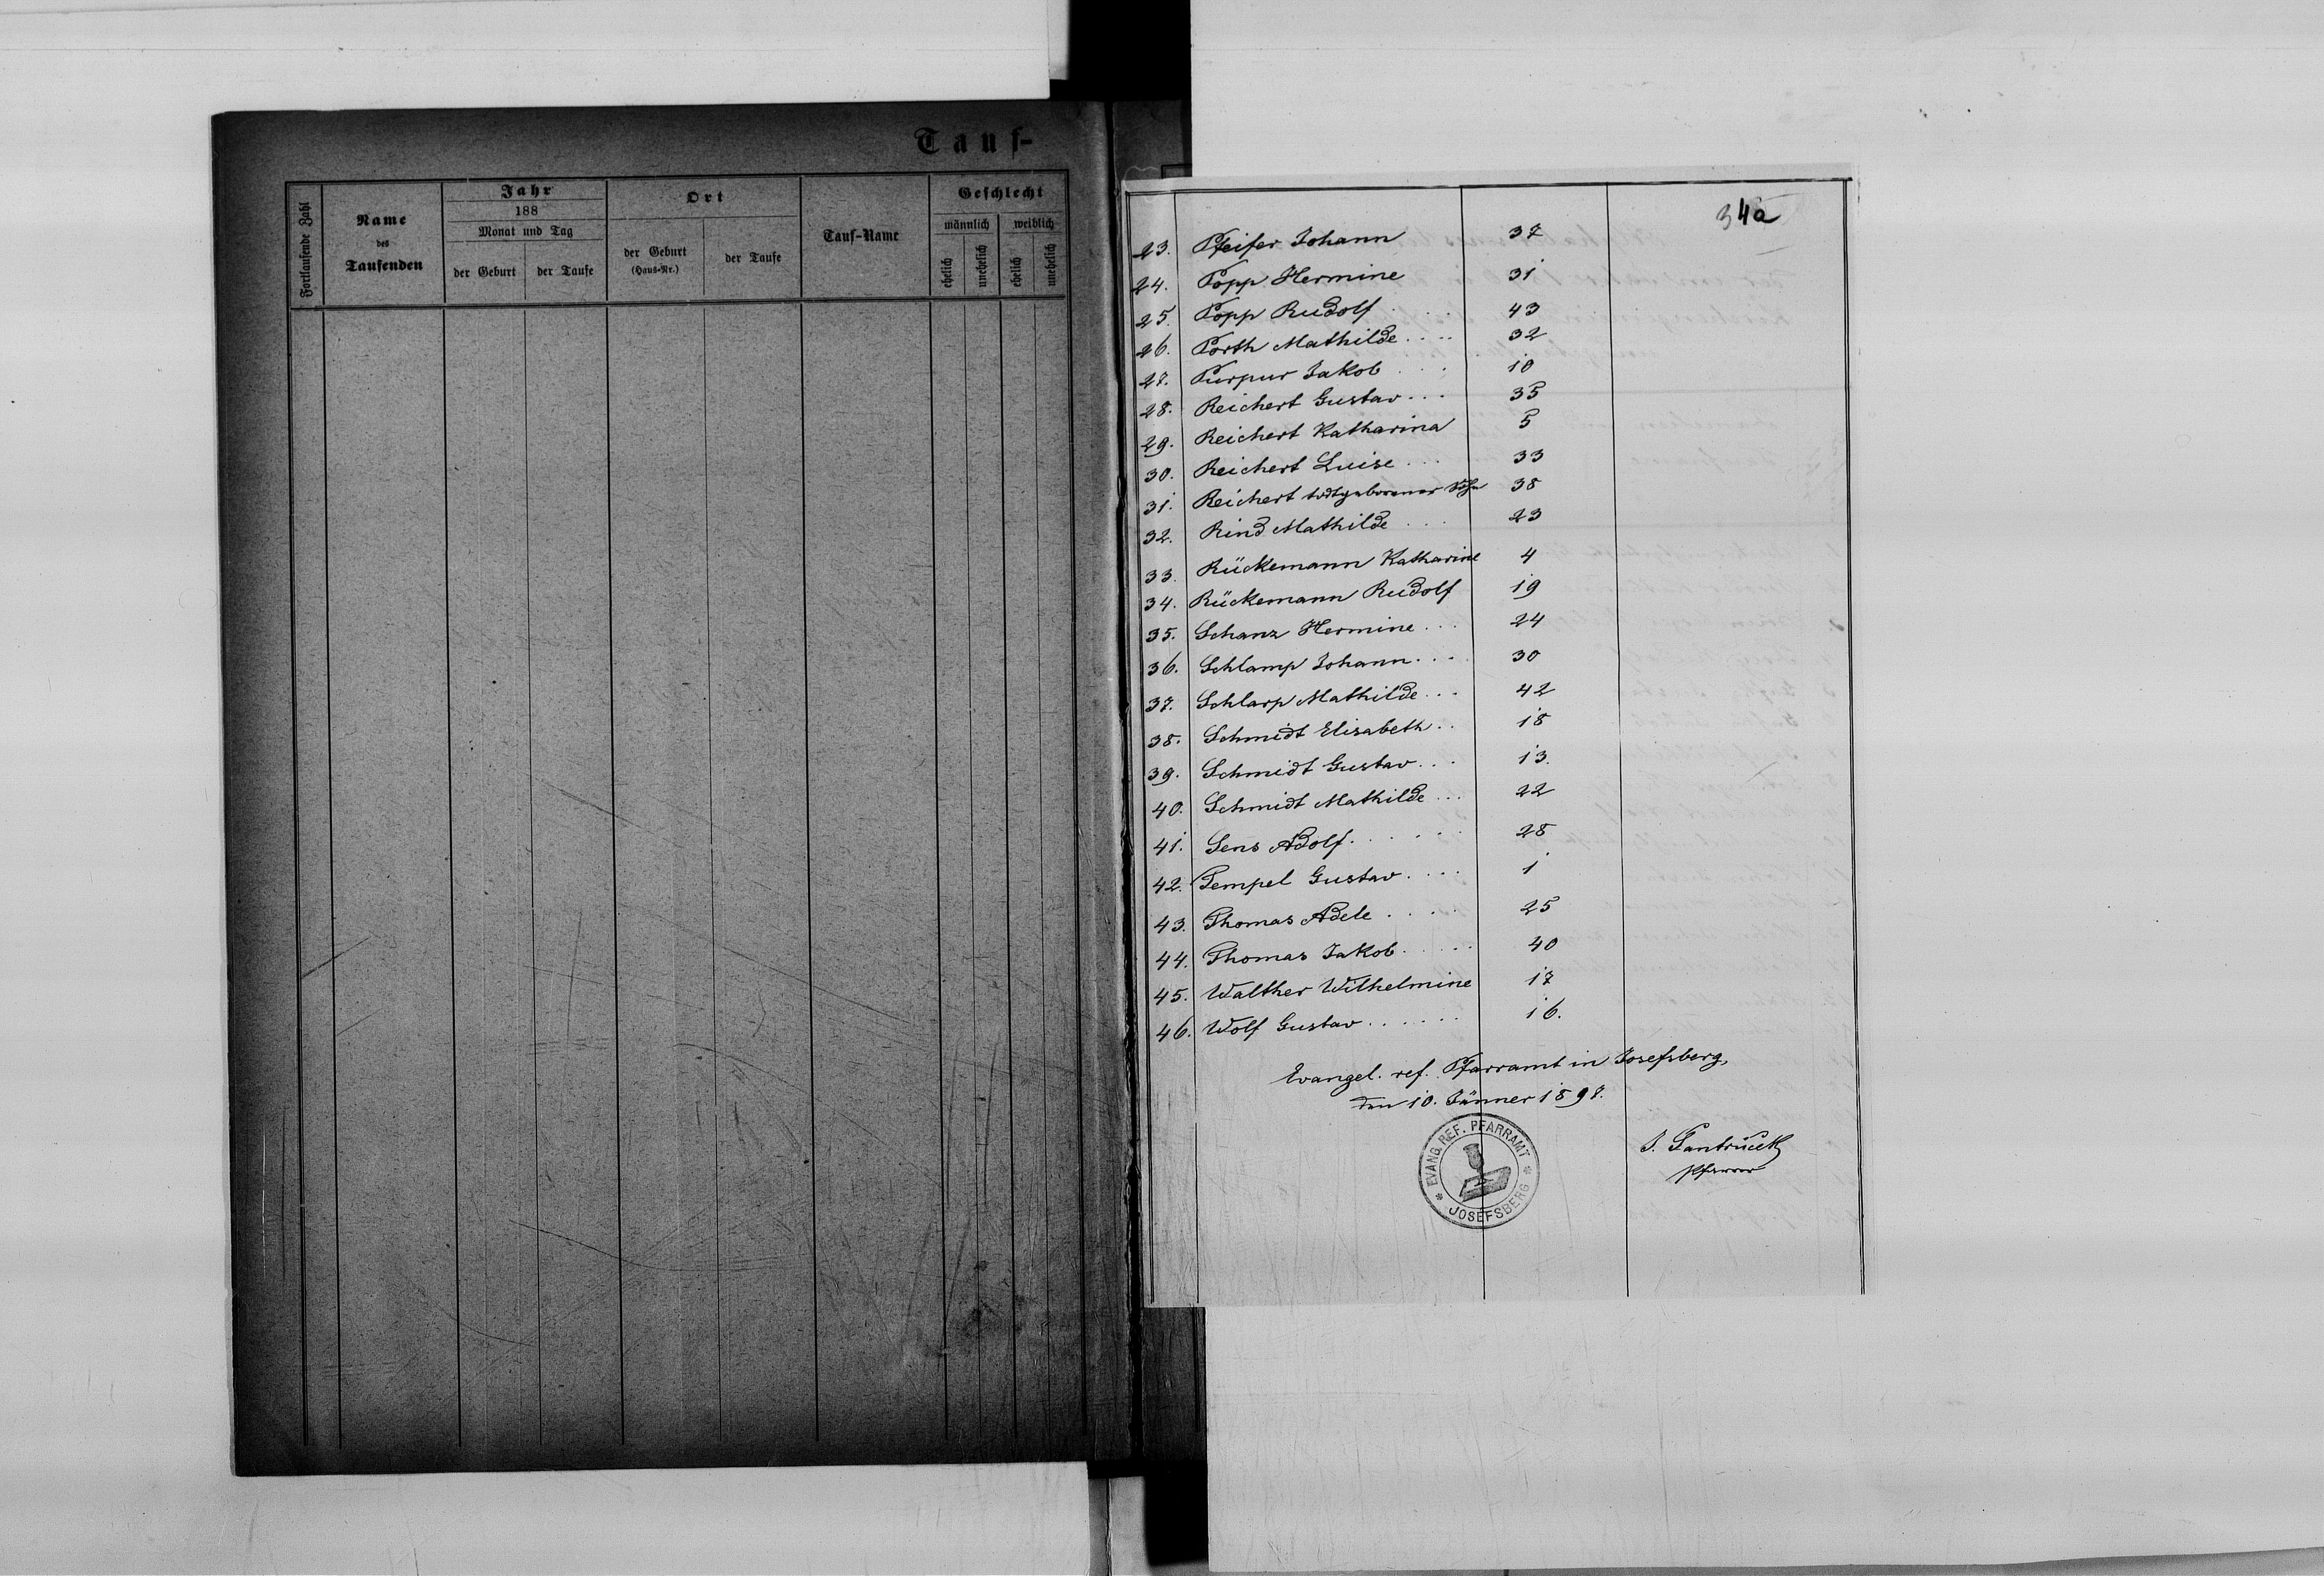 Tauf-
Fortlaufende Zahl
Name
des
Taufenden
Jahr
188
Monat und Tag
der Geburt
der Taufe
Ort
der Geburt
(Haus-Nr.)
der Taufe
Tauf-Name
Geschlecht
männlich
weiblich
ehelich
unehelich
ehelich
unehelich
34a
23. Pfeifer Johann 37
24. Popp Hermine 31
25. Popp Rudolf . . . . 43
26. Porth Mathilde . . . . 32
27. Purpur Jakob . . . 10
28. Reichert Gustav . . . 35
29. Reichert Katharina 5
30. Reichert Luise . . . 33
31. Reichert todtgeborener Sohn 38
32. Rind Mathilde . . . 23
33. Rückemann Katharine 4
34. Rückemann Rudolf 19
35. Schanz Hermine . . . 24
36. Schlamp Johann . . . . 30
37. Schlarp Mathilde . . . 42
38. Schmidt Elisabeth . . 18
39. Schmidt Gustav . . . 13.
40. Schmidt Mathilde . . . 22
41. Sens Adolf . . . . . . 28
42. Tempel Gustav . . . . 1
43. Thomas Adele . . . . 25
44. Thomas Jakob . . . . . 40
45. Walther Wilhelmine 17
46. Wolf Gustav . . . . . . 16.
Evangel. ref. Pfarramt in Josefsberg,
den 10. Jänner 1898.
EVANG. REF. PFARRAMT
* JOSEFSBERG *
J.
Pfarrer